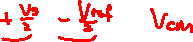 + Vs/2 - Vref/2 Vcm